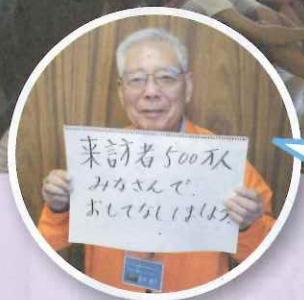 来訪者500万人
みなさんで
おもてなししましょう